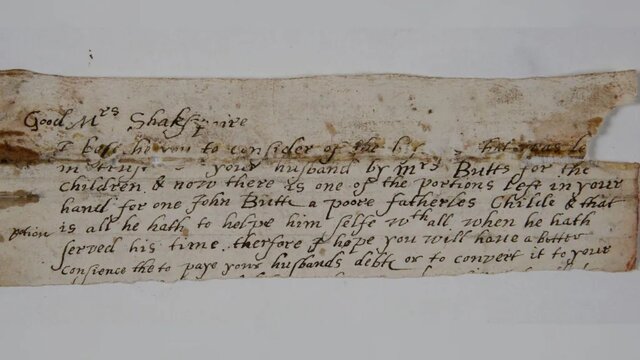 Good Mrs Shakspaire
I besech you to consider of the that was le
in trust your husband by mrs Butts for the
Children & now there is one of the portions left in your
hand for one John Butts a poore fatherles Childe & that
potion is all he hath to helpe him selfe wthall when he hath
served his time therfore I hope you will have a better
Consience the to paye your husbands debts or to convert it to your